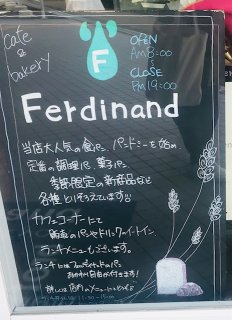 cafe
&
bakery
F
OPEN
Am 8:00
CLOSE
PM 19:00
Ferdinand
当店大人気の食パン、パン・ド・ミーを始め
定番の調理パン、菓子パン
季節限定の新商品など
各種とりそろえています
カフェコーナーにて
のパンやドリンクイートイン、
ランチメニューもございます。
ランチには のパン
が付きます!
詳しくは店内のメニュー
11:30~15:00